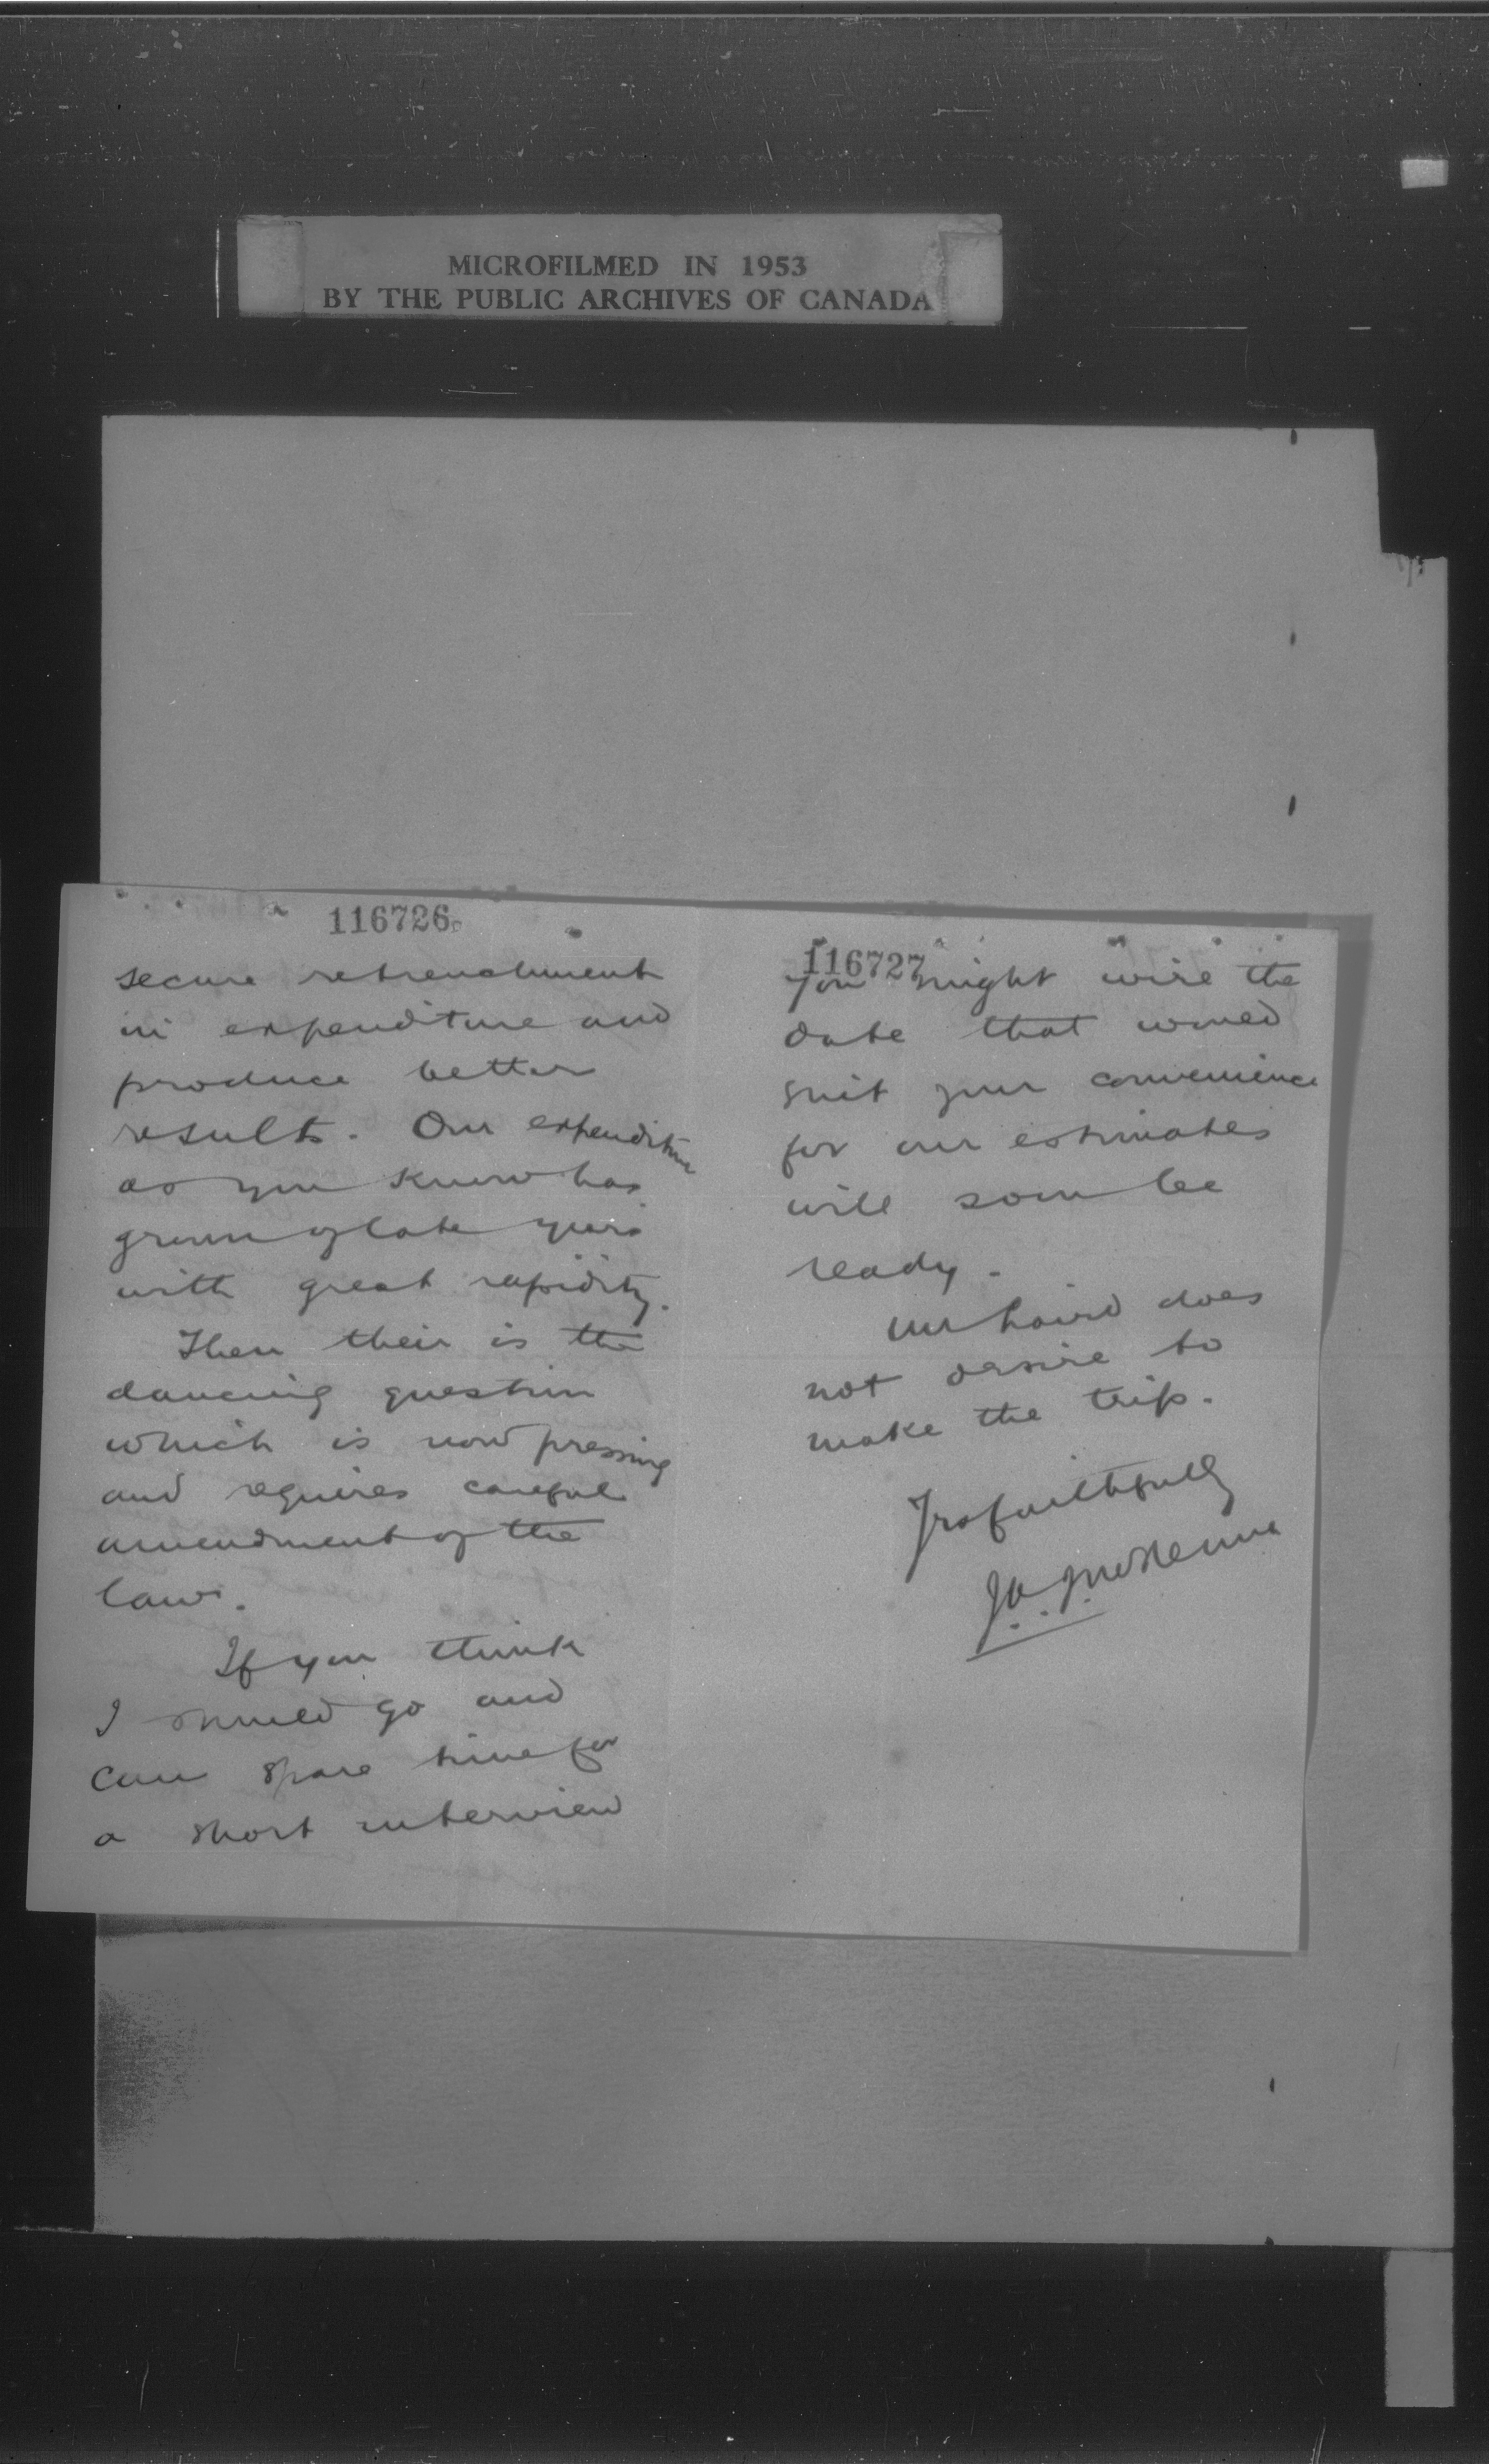 MICROFILMED IN 1953
BY THE PUBLIC ARCHIVES OF CANADA
116726
secure retrenchment
in expenditure and
produce better
results. Our expenditure
as you know has
grown of late years
with great rapidity.
Then their is the
dancing question
which is now pressing
and requires careful
amendment of the
law.
If you think
I should go and
can spare time for
a short interview
116727
you might wire the
date that would
suit your convenience
for our estimates
will soon be
ready.
Mr Laird does
not desire to
make the trip.
Yrs faithfully
J.A. McKenna